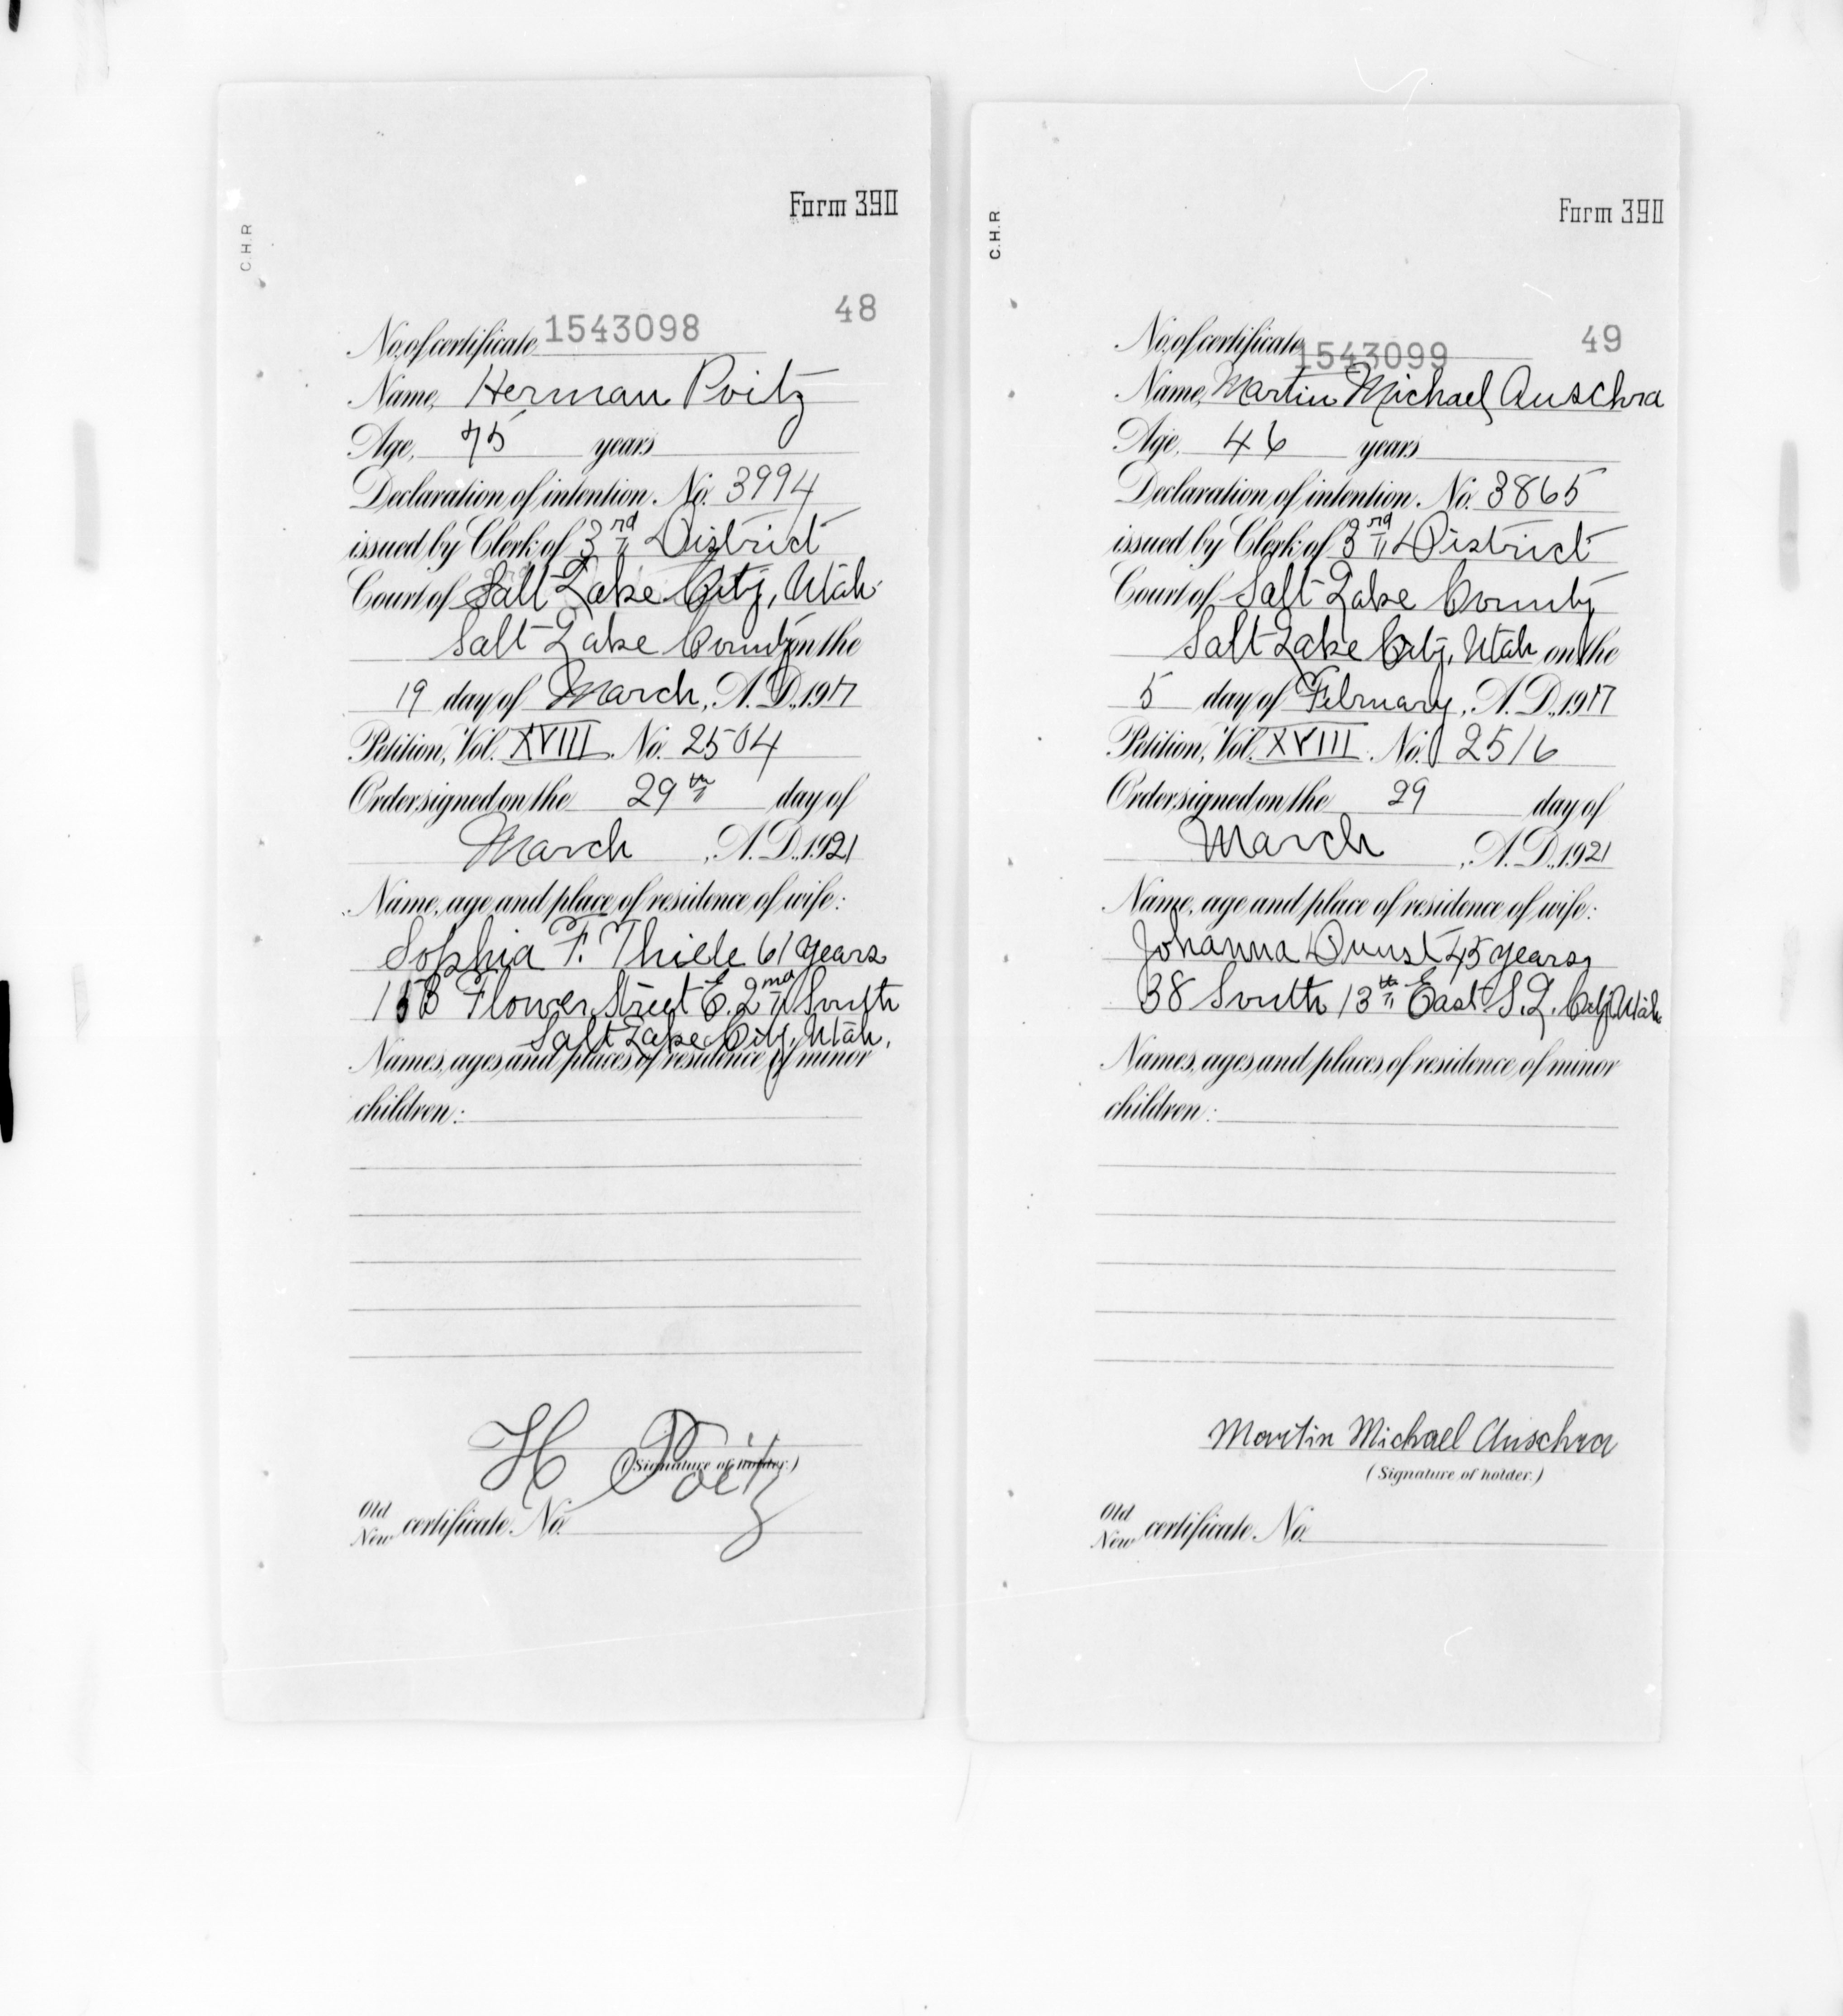 C.H.R
Form 390
48
No. of certificate 1543098
Name, Herman Poitz
Age, 75 years
Declaration of intention. No. 3994
issued by Clerk of 3rd District
Court of Salt Lake City, Utah
Salt Lake County on the
19 day of March, A.D., 1917
Petition, Vol. XVIII. No. 2504
Order signed on the 29th day of
March, A.D., 1921
Name, age and place of residence of wife:
Sophia F. Thiele 61 years
Flower Street E. 2nd South
Salt Lake City, Utah.
Names, ages and places of residence of minor
children:
H Poitz
(Signature of holder.)
Old
New certificate No.
C.H.R
Form 390
49
No. of certificate 1543099
Name, Martin Michael Auschra
Age, 46 years
Declaration of intention. No. 3865
issued by Clerk of 3rd District
Court of Salt Lake County
Salt Lake City, Utah on the
5 day of February, A.D., 1917
Petition, Vol. XVIII. No. 2516
Order signed on the 29 day of
March, A.D., 1921
Name, age and place of residence of wife:
Johanna 45 years,
38 South 13th East S.L. City Utah
Names, ages and places of residence of minor
children:
Martin Michael Auschra
(Signature of holder.)
Old
New certificate No.